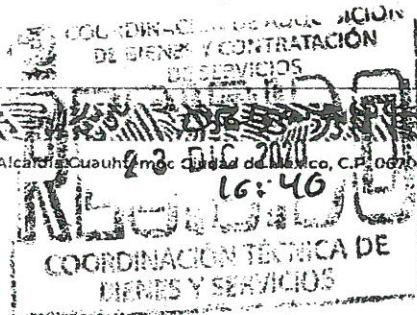 COORDINACIÓN DE ADQUISICIÓN
DE BIENES Y CONTRATACIÓN
DE SERVICIOS
Alcaldía Cuauhtémoc Ciudad de México, C.P. 0670
23 DIC 2020
16:40
RECIBIDO
COORDINACIÓN TÉCNICA DE
BIENES Y SERVICIOS